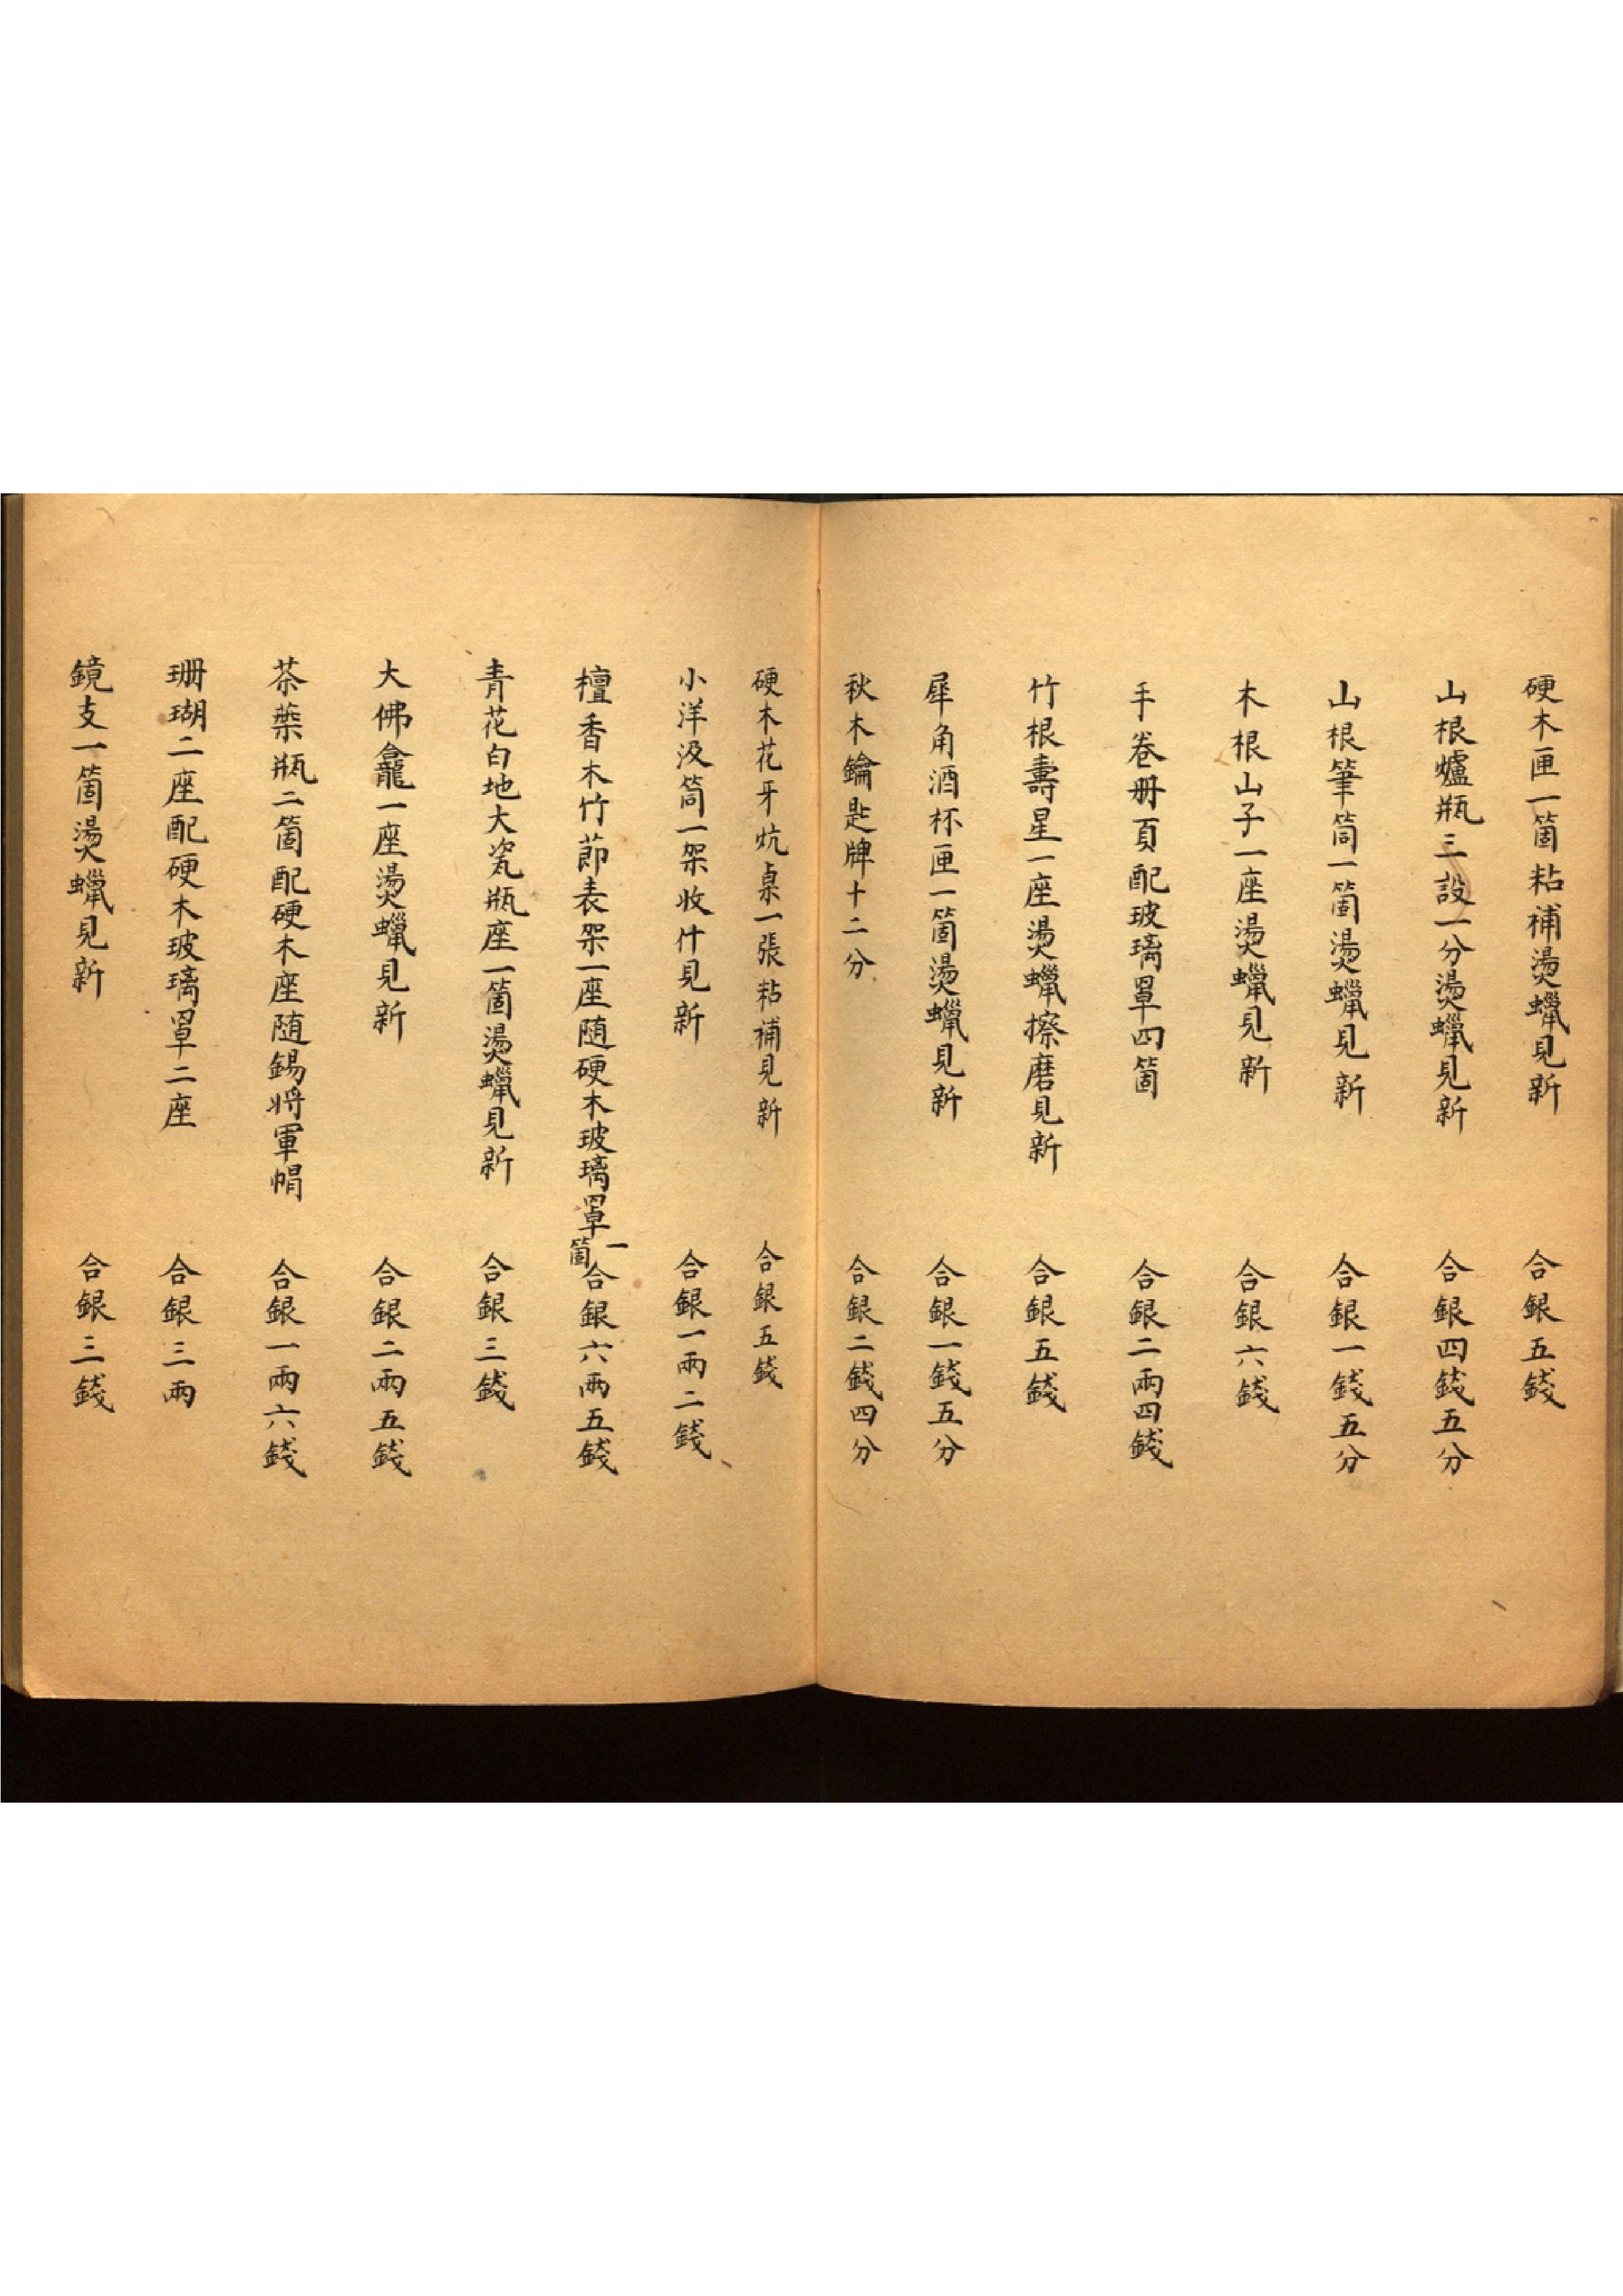 硬木匣一箇粘補燙蠟見新 合銀五錢
山根爐瓶三設一分燙蠟見新 合銀四錢五分
山根筆筒一箇燙蠟見新 合銀一錢五分
木根山子一座燙蠟見新 合銀六錢
手卷册頁配玻璃罩四箇 合銀二兩四錢
竹根壽星一座燙蠟擦磨見新 合銀五錢
犀角酒杯匣一箇燙蠟見新 合銀一錢五分
秋木鑰匙牌十二分 合銀二錢四分
硬木花牙炕桌一張粘補見新 合銀五錢
小洋汲筒一架收什見新 合銀一兩二錢
檀香木竹莭表架一座随硬木玻璃罩一箇 合銀六兩五錢
青花白地大瓷瓶座一箇燙蠟見新 合銀三錢
大佛龕一座燙蠟見新 合銀二兩五錢
茶葉瓶二箇配硬木座随錫将軍帽 合銀一兩六錢
珊瑚二座配硬木玻璃罩二座 合銀三兩
鏡支一箇燙蠟見新 合銀三錢